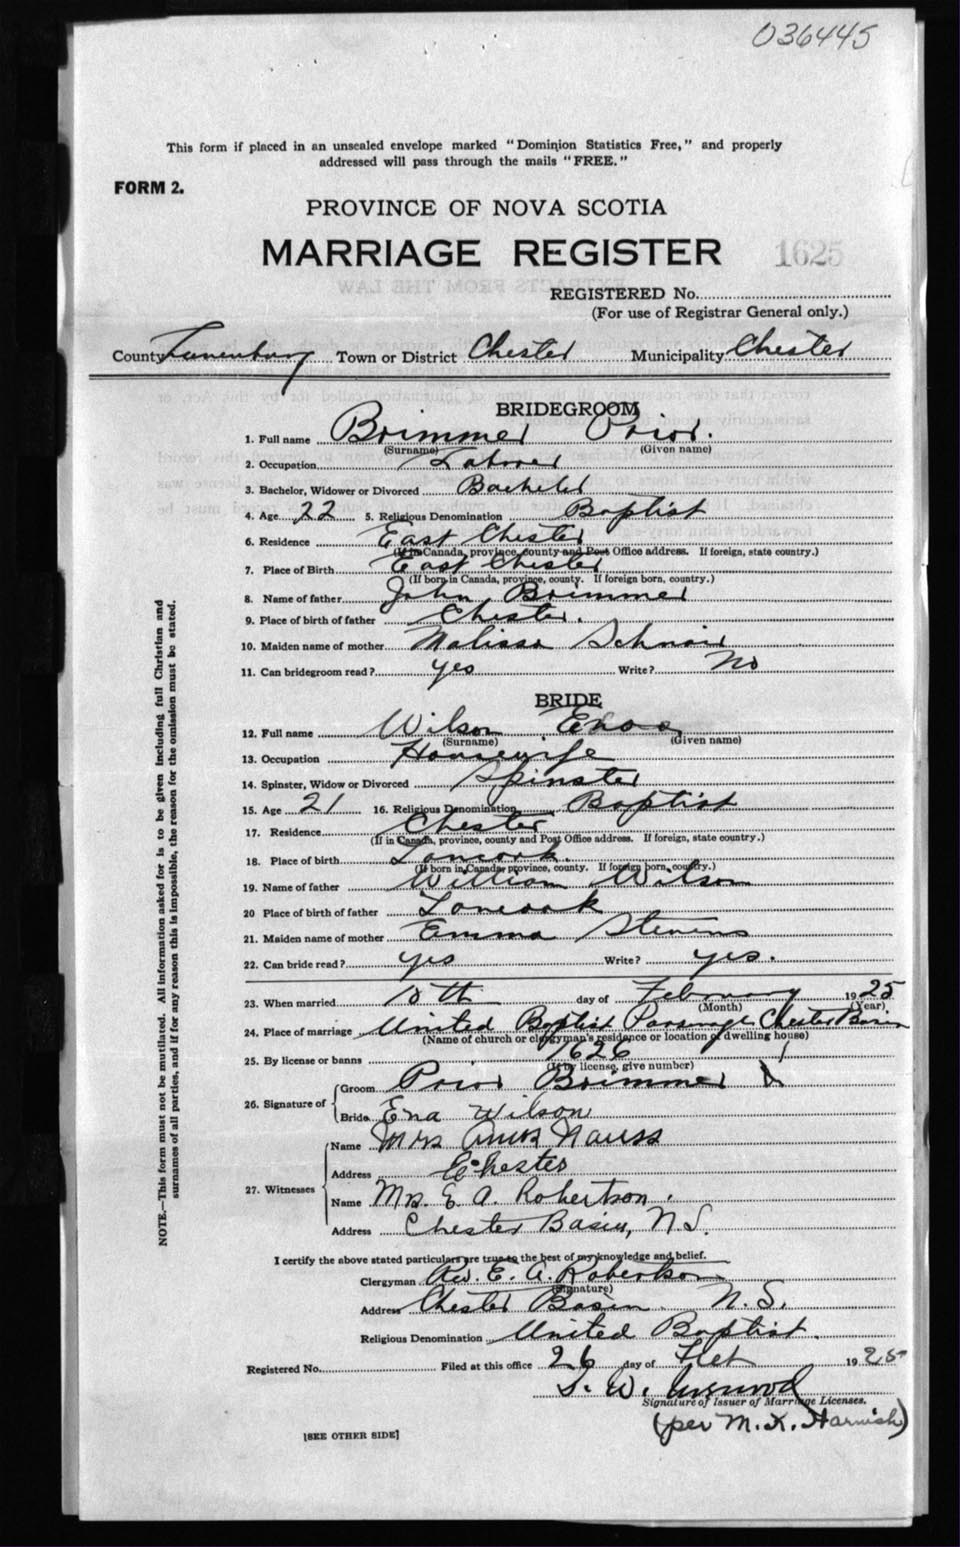 036445
This form if placed in an unsealed envelope marked "Dominion Statistics Free," and properly
addressed will pass through the mails "FREE."
FORM 2.
PROVINCE OF NOVA SCOTIA
MARRIAGE REGISTER 1625
REGISTERED No.
(For use of Registrar General only.)
County Lunenburg Town or District Chester Municipality Chester
BRIDEGROOM
1. Full name Brimmer Prior.
(Surname) (Given name)
2. Occupation Laborer
3. Bachelor, Widower or Divorced Bachelor
4. Age 22 5. Religious Denomination Baptist
6. Residence East Chester
(If in Canada, province, county and Post Office address. If foreign, state country.)
7. Place of Birth East Chester
(If born in Canada, province, county. If foreign born, country.)
8. Name of father John Brimmer
9. Place of birth of father Chester.
10. Maiden name of mother Malissa
11. Can bridegroom read? yes Write? No
BRIDE
12. Full name Wilson
(Surname) (Given name)
13. Occupation Housewife
14. Spinster, Widow or Divorced Spinster
15. Age 21 16. Religious Denomination Baptist
17. Residence Chester
(If in Canada, province, county and Post Office address. If foreign, state country.)
18. Place of birth
(If born in Canada, province, county. If foreign born, country.)
19. Name of father William Wilson
20 Place of birth of father
21. Maiden name of mother Emma Stevens
22. Can bride read? yes Write? yes.
23. When married 10th day of February 1925
(Month) (Year)
24. Place of marriage United Baptist Parsonage Chester Basin
(Name of church or clergyman's residence or location of dwelling house)
25. By license or banns 1626
(If by license, give number)
26. Signature of Groom Prior Brimmer
Bride Ena Wilson
27. Witnesses Name Mrs Amos Nauss
Address Chester
Name Mrs. E. A. Robertson.
Address Chester Basin, N.S.
I certify the above stated particulars are true to the best of my knowledge and belief.
Clergyman Rev. E. A. Robertson
(Signature)
Address Chester Basin N.S.
Religious Denomination United Baptist.
Registered No. Filed at this office 26 day of Feb 1925
S. W.
Signature of Issuer of Marriage Licenses.
(per M. K. Harnish)
[SEE OTHER SIDE]
NOTE.—This form must not be mutilated. All information asked for is to be given including full Christian and
surnames of all parties, and if for any reason this is impossible, the reason for the omission must be stated.